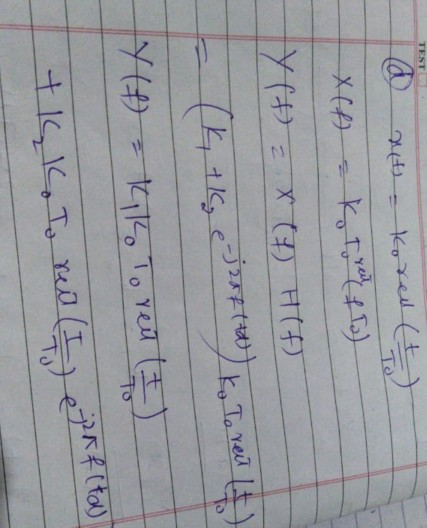 TEST
(a) x(t) = K₀ rect (t/T₀)
X(f) = K₀ T₀ rect (f T₀)
Y(f) = X(f) H(f)
= (K₁ + K₂ e^-j2πf(td)) K₀ T₀ rect (t/T₀)
Y(f) = K₁ K₀ T₀ rect (t/T₀)
+ K₂ K₀ T₀ rect (t/T₀) e^-j2πf(td)